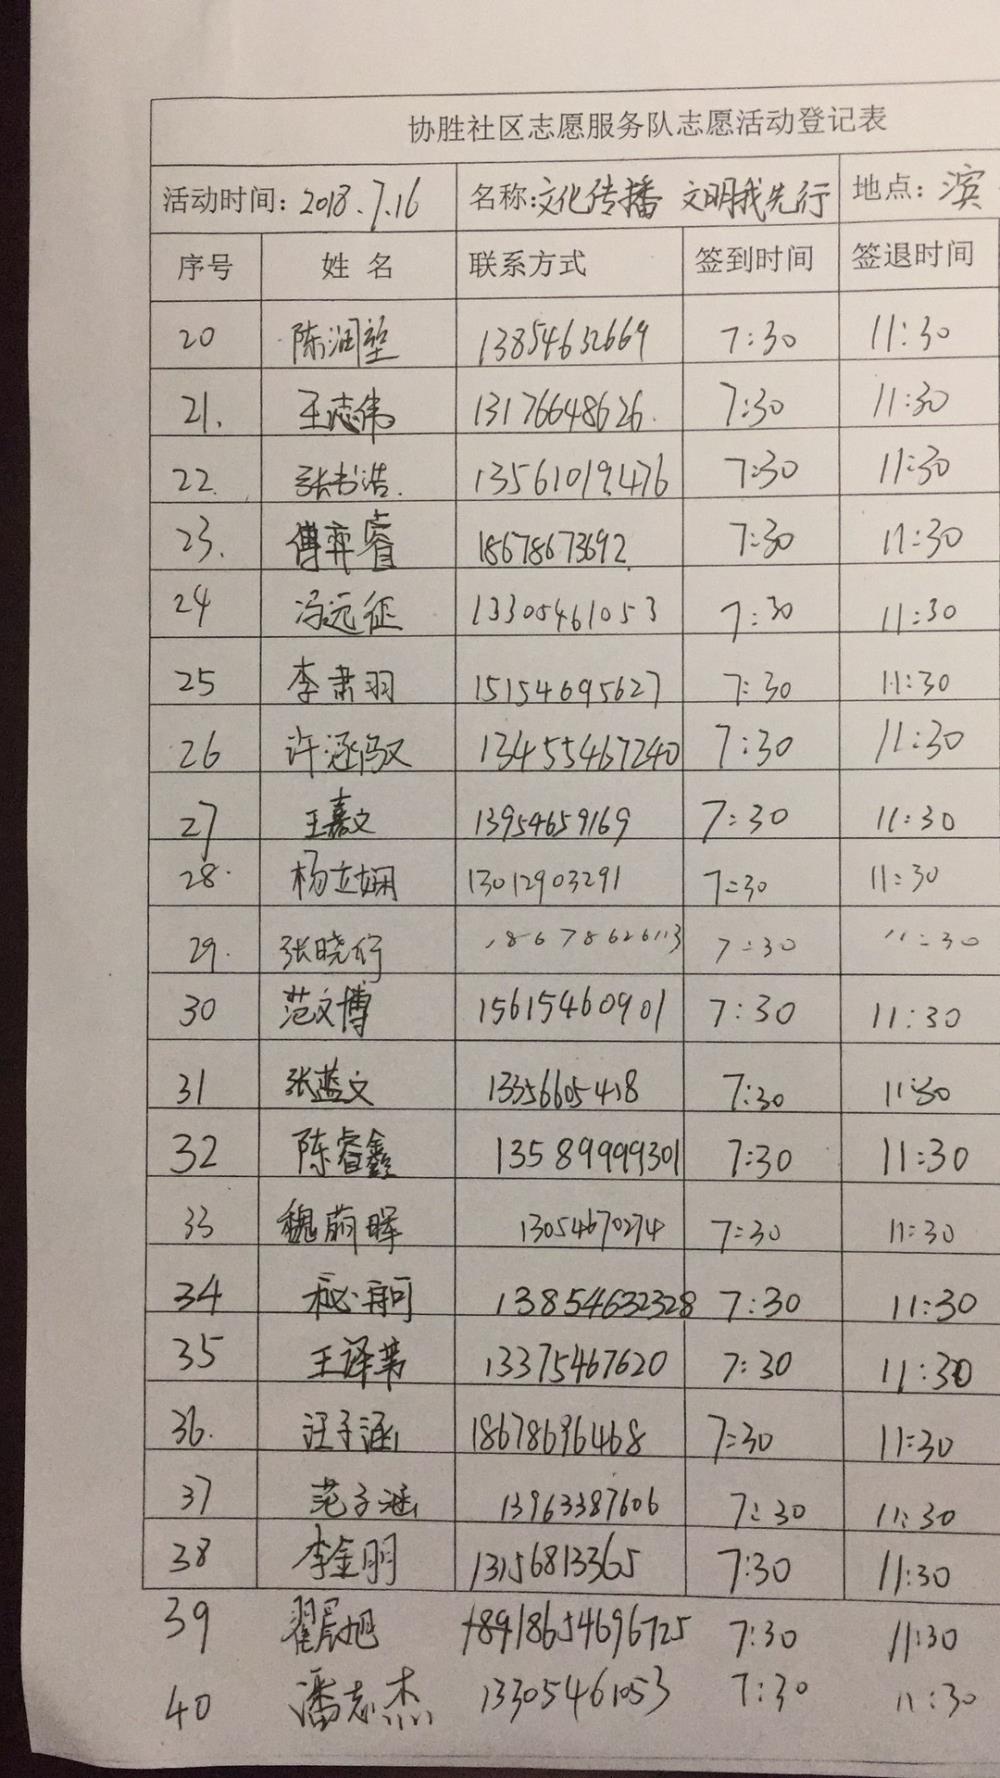 协胜社区志愿服务队志愿活动登记表
活动时间: 2018.7.16 名称:文化传播 文明我先行 地点: 滨
序号 姓名 联系方式 签到时间 签退时间
20 陈润堃 13854632669 7:30 11:30
21. 王志伟 13176648626. 7:30 11:30
22. 张书浩. 13561019476 7:30 11:30
23. 傅弈睿 18678673692 7:30 11:30
24 冯远征 13305461053 7:30 11:30
25 李肃羽 15154695627 7:30 11:30
26 许涵驭 13455467240 7:30 11:30
27 王嘉文 13954659169 7:30 11:30
28. 杨立娴 13012903291 7:30 11:30
29. 张晓行 18678626113 7:30 11:30
30 范文博 15615460901 7:30 11:30
31 张蓝文 13356605418 7:30 11:30
32 陈睿鑫 13589999301 7:30 11:30
33 魏萌晖 13054670274 7:30 11:30
34 13854632328 7:30 11:30
35 王译苇 13375467620 7:30 11:30
36. 汪子涵 18678696468 7:30 11:30
37 范子涵 13963387606 7:30 11:30
38 李金朋 13156813365 7:30 11:30
39 翟晨旭 18654696725 7:30 11:30
40 潘志杰 13305461053 7:30 11:30